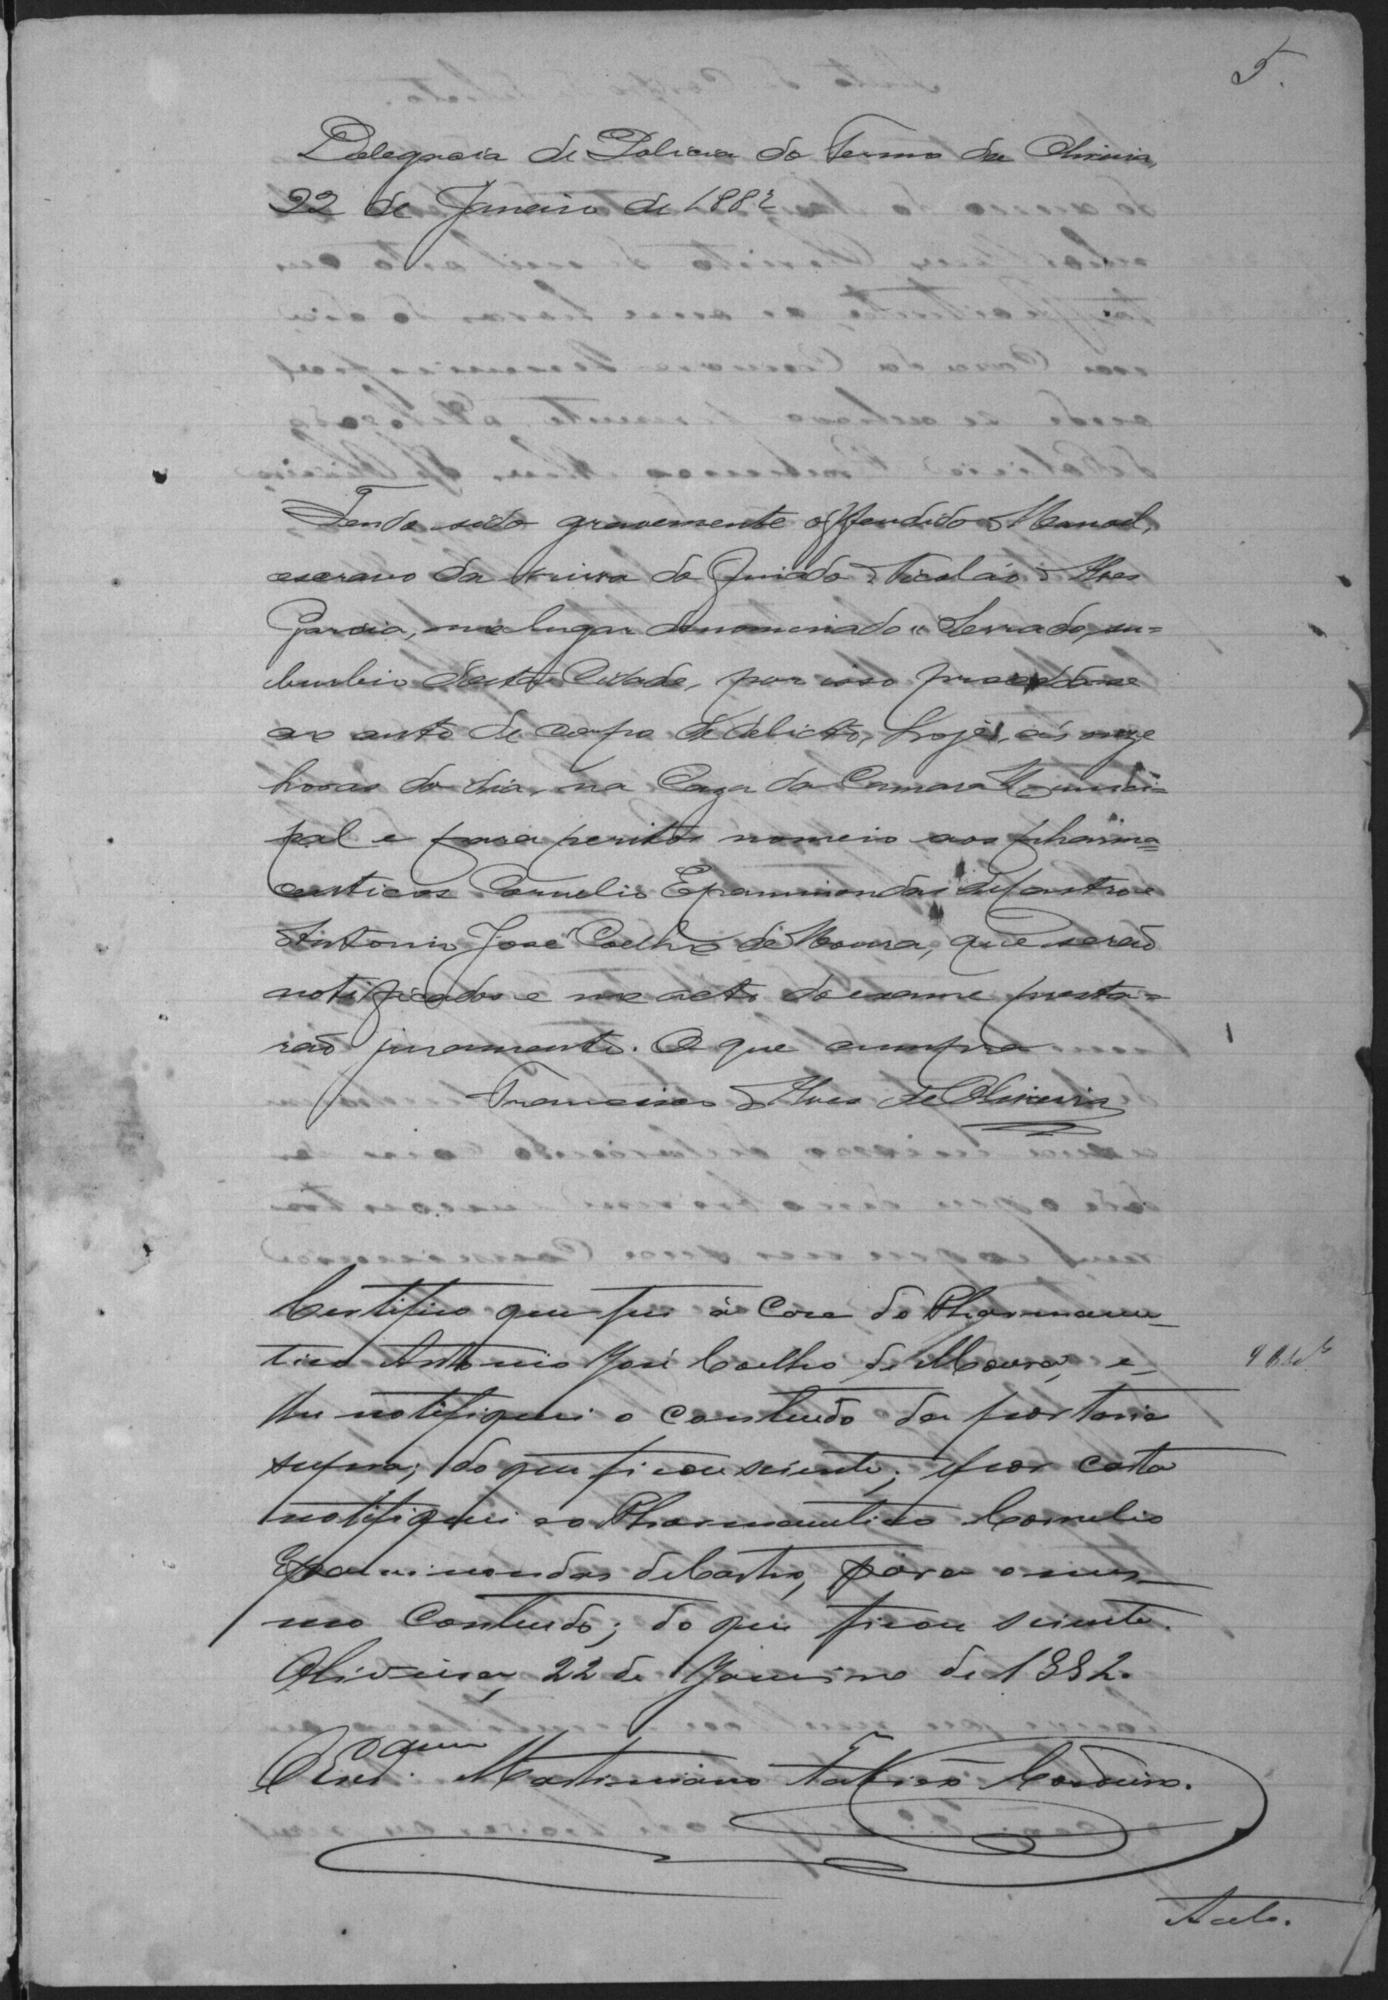 5.
Delegacia de Policia do Termo da Oliveira,
22 de Janeiro de 1882
Tendo sido gravemente offendido Manoel,
escravo da viuva do finado Nicoláo Alves
Garcia, no lugar denominado "Serrado, su=
burbio desta Cidade, por isso procedase
ao auto de corpo de delicto, hoje, ás onze
horas do dia, na Caza da Camara Munici=
pal e para peritos nomeio aos pharma=
ceuticos Cornelio Epaminondas de Castro e
Antonio José Coelho de Moura, que serão
notificados e no acto do exame presta=
rão juramento. O que cumpra
Francisco Alves de Oliveira
Certifico que fui á Caza do Pharmaceu-
tico Antonio José Coelho de Moura, e
lhe notifiquei o contheudo da portaria
supra; do que ficou sciente; e por carta
notifiquei ao Pharmaceutico Cornelio
Epaminondas de Castro, para o mes-
mo contheudo; do que ficou sciente.
Oliveira, 22 de Janeiro de 1882.
O Escr.am
Martiniano
Acto.